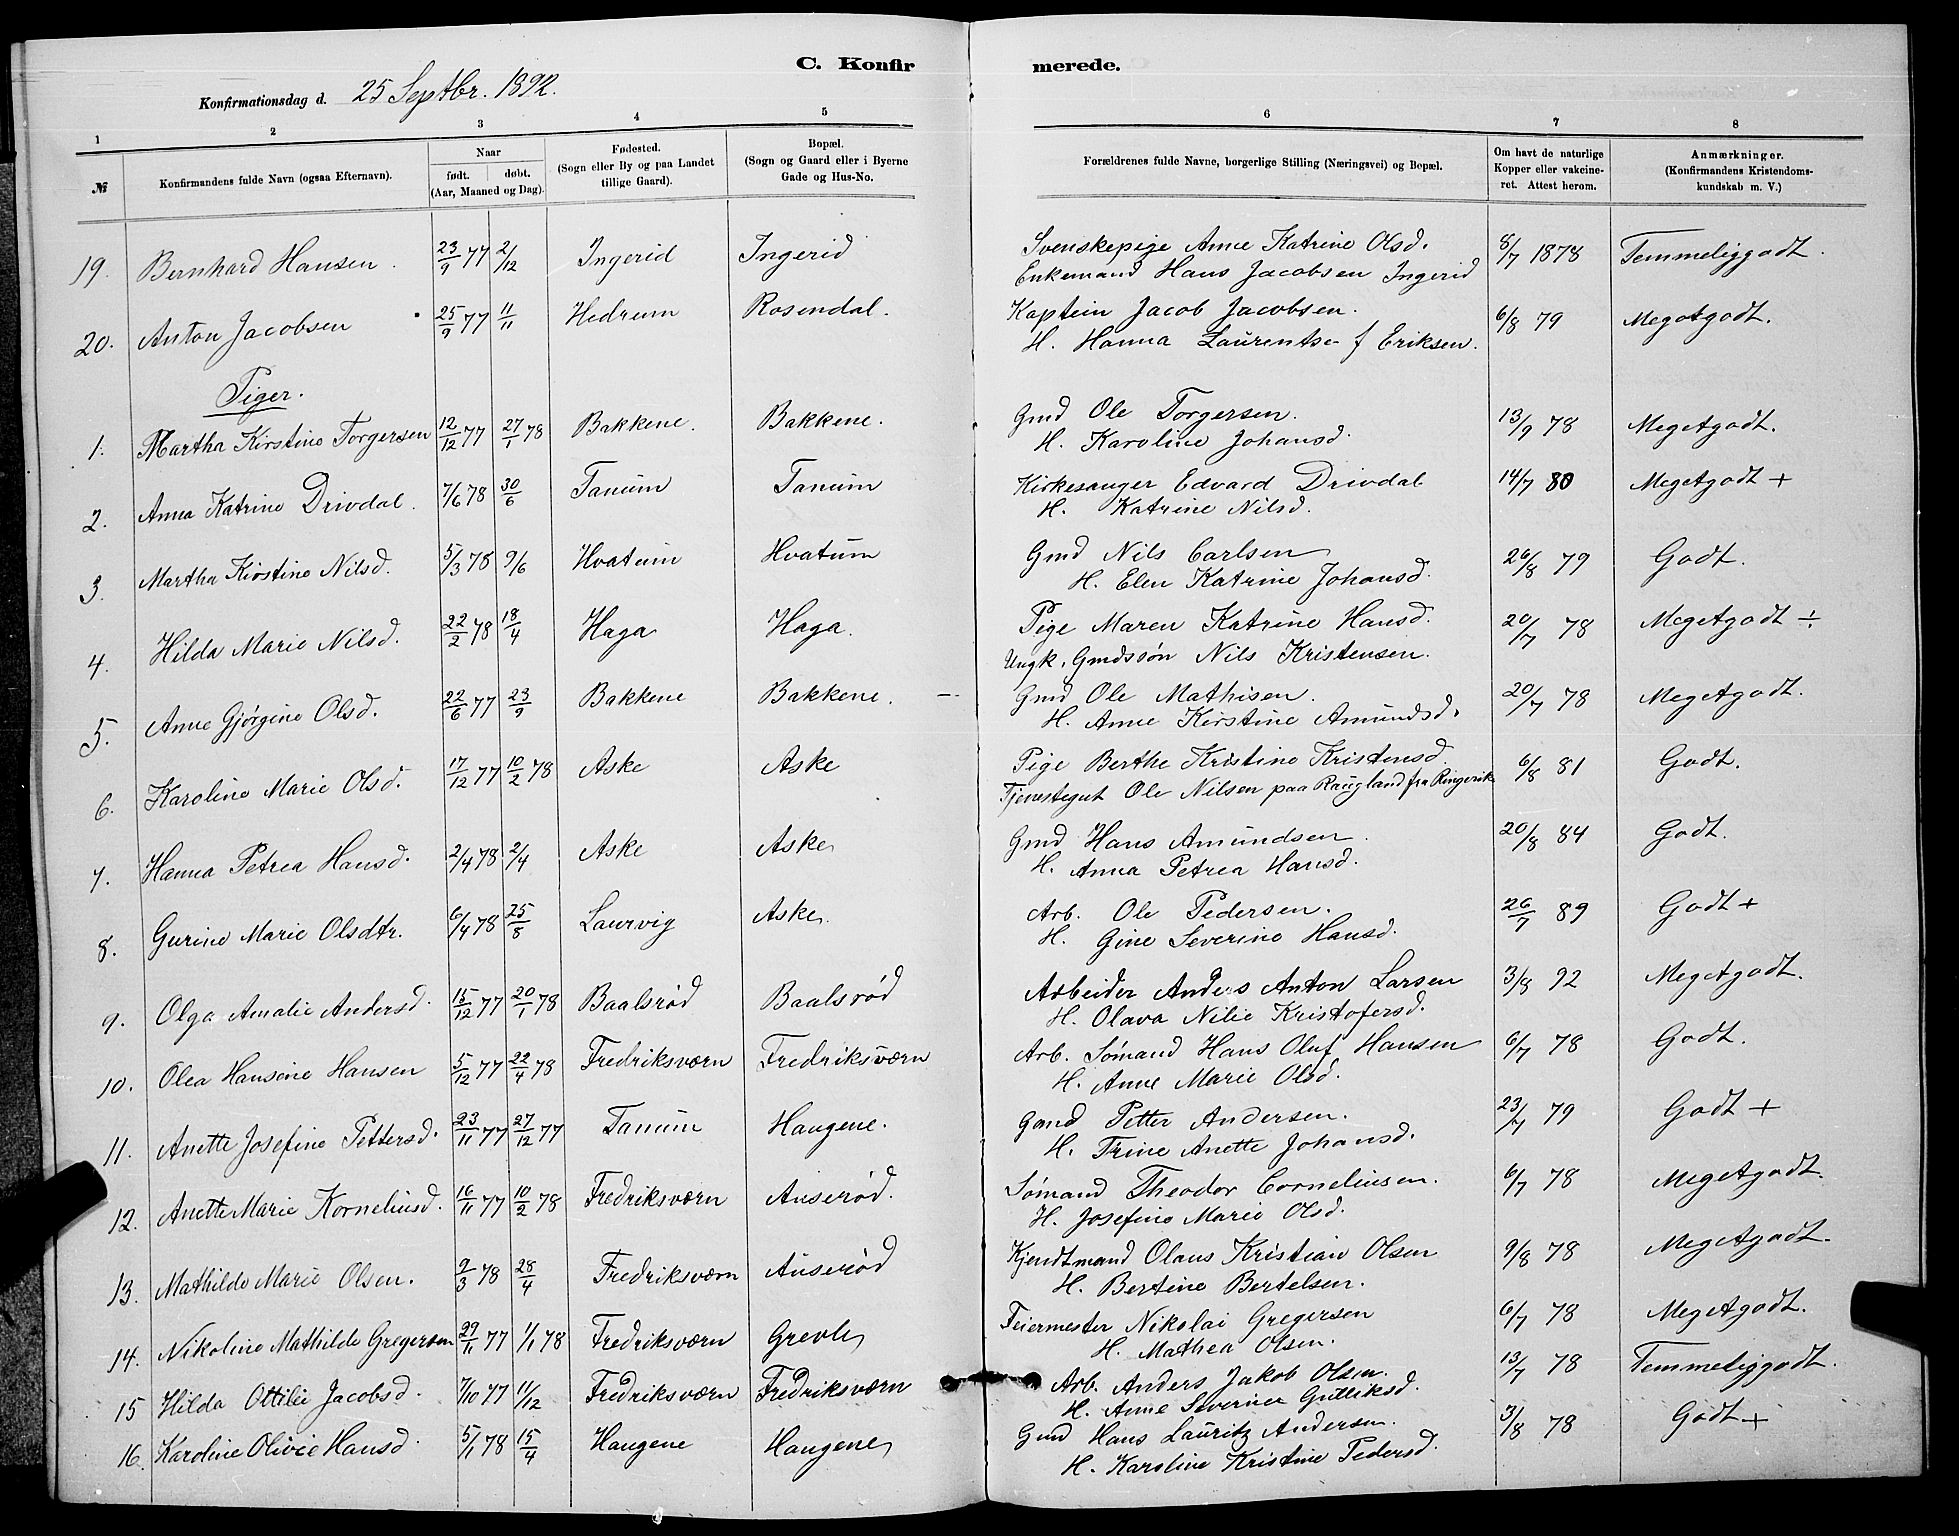 C. Konfirmerede.
Konfirmationsdag d. 25 Septbr. 1892.
1 2 3 4 5 6 7 8
№ Konfirmandens fulde Navn (ogsaa Efternavn). Naar født. døbt. (Aar, Maaned og Dag). Fødested. (Sogn eller By og paa Landet tillige Gaard). Bopæl. (Sogn og Gaard eller i Byerne Gade og Hus-No. Forældrenes fulde Navne, borgerlige Stilling (Næringsvei) og Bopæl. Om havt de naturlige Kopper eller vakcineret. Attest herom. Anmærkninger. (Konfirmandens Kristendomskundskab m. V.)
19. Bernhard Hansen. 23/9 77 2/12 Ingerid Ingerid Svenskepige Anne Katrine Olsd. 8/7 1878 Temmeliggodt.
Enkemand Hans Jacobsen Ingerid
20. Anton Jacobsen 25/9 77 11/11 Hedrum Rosendal. Kaptein Jacob Jacobsen. 6/8 79 Megetgodt.
H. Hanna Laurentse f Eriksen.
Piger.
1. Martha Kirstine Torgersen 12/12 77 27/1 78 Bakkene. Bakkene. Gmd Ole Torgersen. 13/9 78 Megetgodt.
H. Karoline Johansd.
2. Anna Katrine Drivdal. 7/6 78 30/6 Tanum Tanum Kirkesanger Edvard Drivdal 14/7 80 Megetgodt +
H. Katrine Nilsd.
3. Martha Kirstine Nilsd. 5/3 78 9/6 Hvatum Hvatum Gmd Nils Carlsen 26/8 79 Godt.
H. Elen Katrine Johansd.
4. Hilda Marie Nilsd. 22/2 78 18/4 Haga Haga. Pige Maren Katrine Hansd. 20/7 78 Megetgodt ÷
Ungk. Gmdssøn Nils Kristensen.
5. Anne Gjørgine Olsd. 22/6 77 23/9 Bakkene Bakkene. Gmd Ole Mathisen. 20/7 78 Megetgodt.
H. Anne Kirstine Amundsd.
6. Karoline Marie Olsd. 17/12 77 10/2 78 Aske Aske Pige Berthe Kristine Kristensd. 6/8 81 Godt.
Tjenestegut Ole Nilsen paa Raugland fra Ringerik
7. Hanna Petrea Hansd. 2/4 78 2/4 Aske Aske Gmd Hans Amundsen. 20/8 84 Godt.
H. Anna Petrea Hansd.
8. Gurine Marie Olsdtr. 6/4 78 25/8 Laurvig Aske Arb. Ole Pedersen. 26/7 89 Godt +
H. Gine Severine Hansd.
9. Olga Amalie Andersd. 15/12 77 20/1 78 Baalsrød Baalsrød Arbeider Anders Anton Larsen 3/8 92 Megetgodt.
H. Olava Nilie Kristofersd.
10. Olea Hansine Hansen 5/12 77 22/4 78 Fredriksværn Fredriksværn Arb. Sømand Hans Oluf Hansen 6/7 78 Godt.
H. Anne Marie Olsd.
11. Anette Josefine Pettersd. 23/11 77 27/12 77 Tanum Haugene. Gmd Petter Andersen. 23/7 79 Godt +
H. Trine Anette Johansd.
12. Anette Marie Korneliusd. 16/11 77 10/2 78 Fredriksværn Auserød. Sømand Theodor Corneliusen. 6/7 78 Megetgodt.
H. Josefine Marie Olsd.
13. Mathilde Marie Olsen. 9/3 78 28/4 Fredriksværn Auserød Kjendtmand Olaus Kristian Olsen 9/8 78 Megetgodt.
H. Bertine Bertelsen.
14. Nikoline Mathilde Gregersen 29/11 77 1/1 78 Fredriksværn Grevle Feiermester Nikolai Gregersen 6/7 78 Megetgodt.
H. Mathea Olsen.
15 Hilda Ottilie Jacobsd. 7/10 77 11/12 Fredriksværn Fredriksværn Arb. Anders Jakob Olsen. 13/7 78 Temmeliggodt.
H. Anne Severine Gulliksd.
16. Karoline Olivie Hansd. 5/1 78 15/4 Haugene Haugene Gmd Hans Lauritz Andersen. 3/8 78 Godt +
H. Karoline Kristine Pedersd.